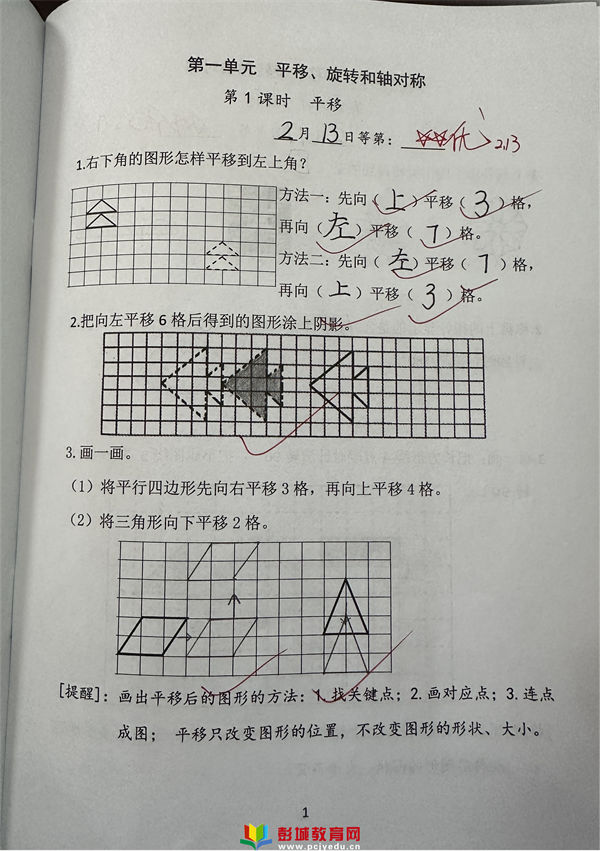 第一单元 平移、旋转和轴对称
第1课时 平移
2月13日等第：☆☆优 2.13
1.右下角的图形怎样平移到左上角？
方法一：先向（上）平移（3）格，
再向（左）平移（7）格。
方法二：先向（左）平移（7）格，
再向（上）平移（3）格。
2.把向左平移6格后得到的图形涂上阴影。
3.画一画。
（1）将平行四边形先向右平移3格，再向上平移4格。
（2）将三角形向下平移2格。
[提醒]：画出平移后的图形的方法：1.找关键点；2.画对应点；3.连点
成图； 平移只改变图形的位置，不改变图形的形状、大小。
1
彭城教育网
www.pcjyedu.cn